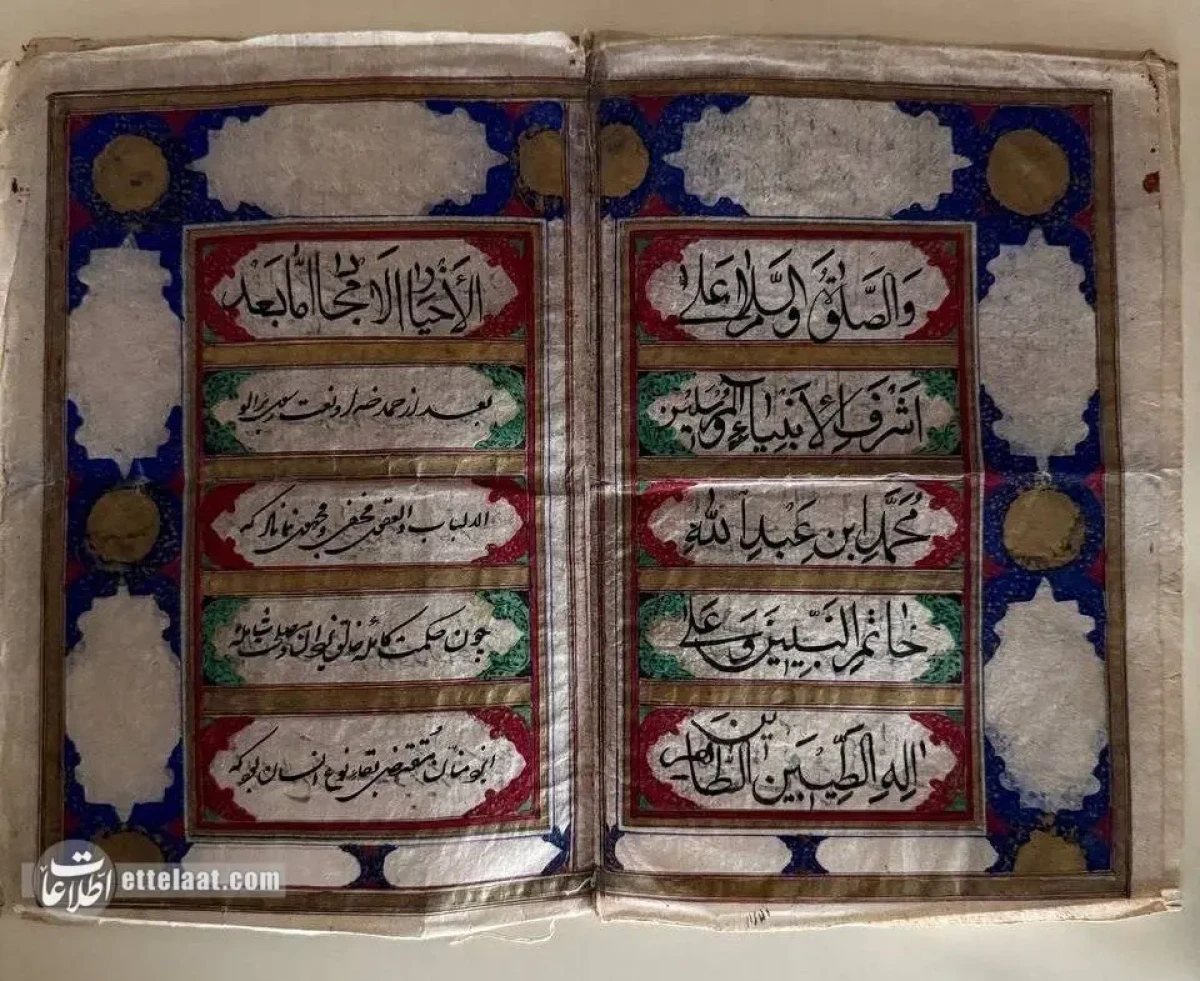 وَالصَّلٰوةُ وَالسَّلٰامُ عَلٰی
اَشْرَفِ الْأَنْبِیٰاءِ وَالْمُرْسَلِینَ
مُحَمَّدِ ابْنِ عَبْدِ اللّٰهِ
خٰاتَمِ النَّبِیّینَ وَ عَلٰی
اٰلِهِ الطَّیِّبینَ الطّٰاهِرینَ
الْأَخْیٰارِ الْاَمْجٰادِ اَمّٰا بَعْد
بعد از حمد خداوند و نعت
الالباب و العقول مخفی و محجوب نماناد که
چون حکمت کامله خالق
انس و جان مُقتضی بقاء نوع انسان بود که
اطلاعات
ettelaat.com